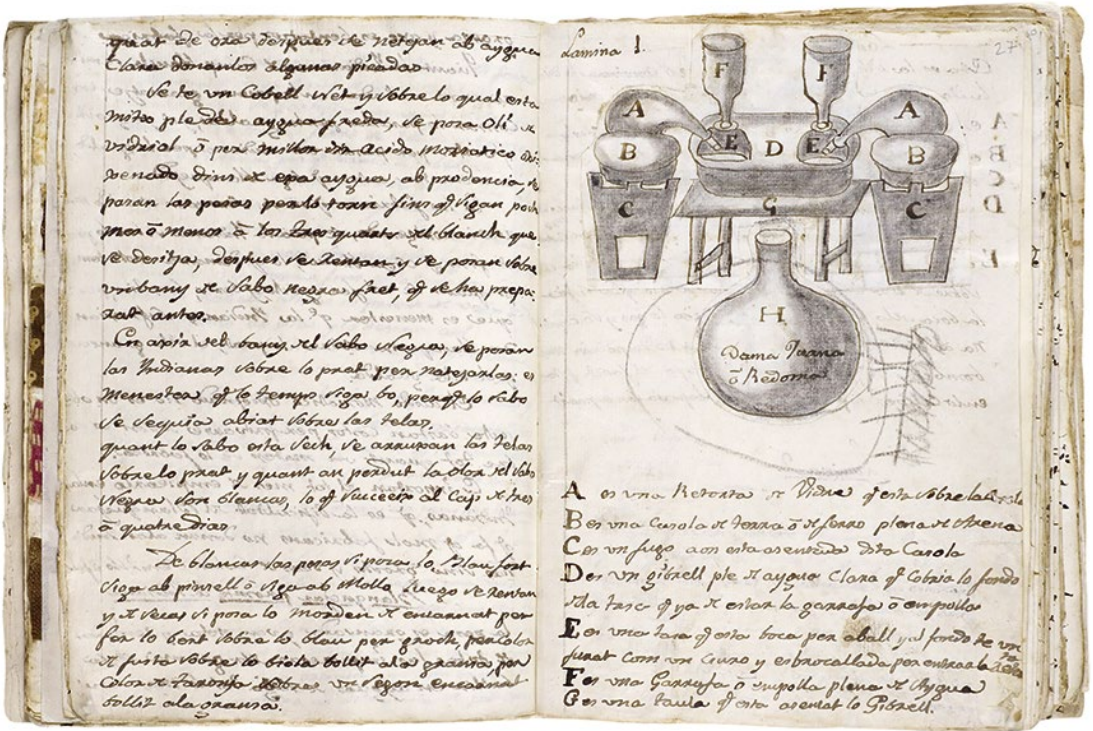 quat de ora despues de netejar ab aygua
Clara donantlos algunas picadas
Se te un Cobell Net y sobre lo qual esta
mitx ple de aygua freda, se posa Oli de
vidriol ō per millor dir Acido moriatico
dins de epa aygua, ab prodencia, se
pasan las pesas per lo torn fins q̄ sigan poch
mes ō menos ā los tres quarts del blanch que
se desitja, despues se Rentan y se posan sobre
un bany de Sabo negre fret, q̄ se ha prepa-
rat antes.
En axir del bany del Sabo Negra, se posan
las Yndianas sobre lo prat per netejarlas: es
menester q̄ lo temps siga bo, perq̄ lo Sabo
se seguia abiat sobre las telas.
quant lo Sabo esta sech, se arrupan las telas
sobre lo prat y quant an perdut la olor del Sabo
Negra son blancas, lo q̄ succeix al Cap de tres
ō quatre dias.
De blancas las pesas si posa lo Blau fort
siga ab pinsell ō siga ab Mollo luego se Rentan
y de secas si posa lo morden de encarnat per
fer lo bert sobre lo blau per groch, per color
de fusta sobre lo biola bollit a la gransa, per
Color de taronja sobre un segon encarnat
bollit a la gransa.
Lamina 1.
271
F F
A A
E D E
B B
C G C
H
Dama Juana
ō Redoma
A es una Retorta de Vidre q̄ esta sobre la Casola
B es una Casola de terra ō de ferro plena de Arena
C es un fugo aon esta asentada dita Casola
D es un gibrell ple de aygua Clara q̄ Cobria lo fondo
de la q̄ ya de estar la garrafa ō empolla
E es una tasa q̄ esta boca per aball y al fondo te un
furat Com un Curo y esbrocallada per entrar la
F es una Garrafa ō empolla plena de Aygua
G es una taula q̄ esta asentat lo Gibrell.